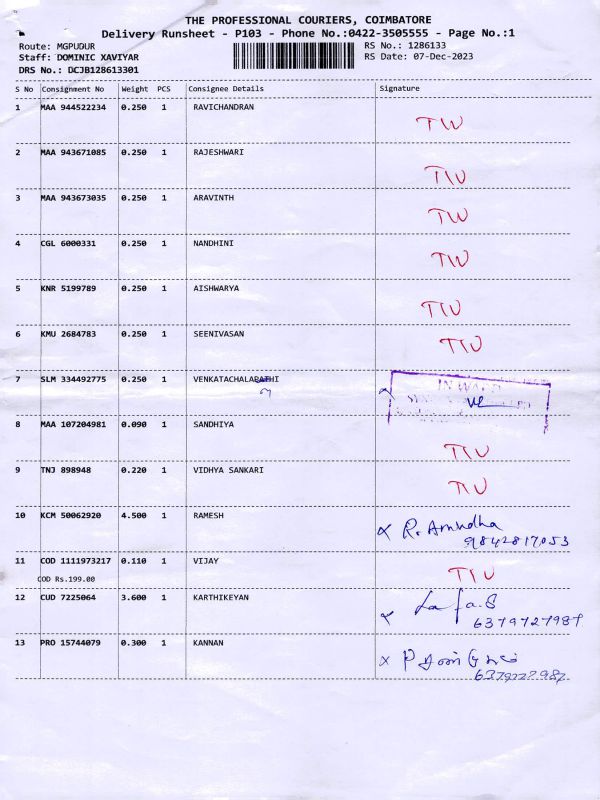 THE PROFESSIONAL COURIERS, COIMBATORE
Delivery Runsheet - P103 - Phone No.:0422-3505555 - Page No.:1
Route: MGPUDUR RS No.: 1286133
Staff: DOMINIC XAVIYAR RS Date: 07-Dec-2023
DRS No.: DCJB128613301
S No Consignment No Weight PCS Consignee Details Signature
1 MAA 944522234 0.250 1 RAVICHANDRAN
TIU
2 MAA 943671085 0.250 1 RAJESHWARI
TIU
3 MAA 943673035 0.250 1 ARAVINTH
TIU
4 CGL 6000331 0.250 1 NANDHINI
TIU
5 KNR 5199789 0.250 1 AISHWARYA
TIU
6 KMU 2684783 0.250 1 SEENIVASAN
TIU
7 SLM 334492775 0.250 1 VENKATACHALAPATHI
INWARD
8 MAA 107204981 0.090 1 SANDHIYA
TIU
9 TNJ 898948 0.220 1 VIDHYA SANKARI
TIU
10 KCM 50062920 4.500 1 RAMESH
R. Amudha
9842817053
11 COD 1111973217 0.110 1 VIJAY
COD Rs.199.00
TIU
12 CUD 7225064 3.600 1 KARTHIKEYAN
6379727987
13 PRO 15744079 0.300 1 KANNAN